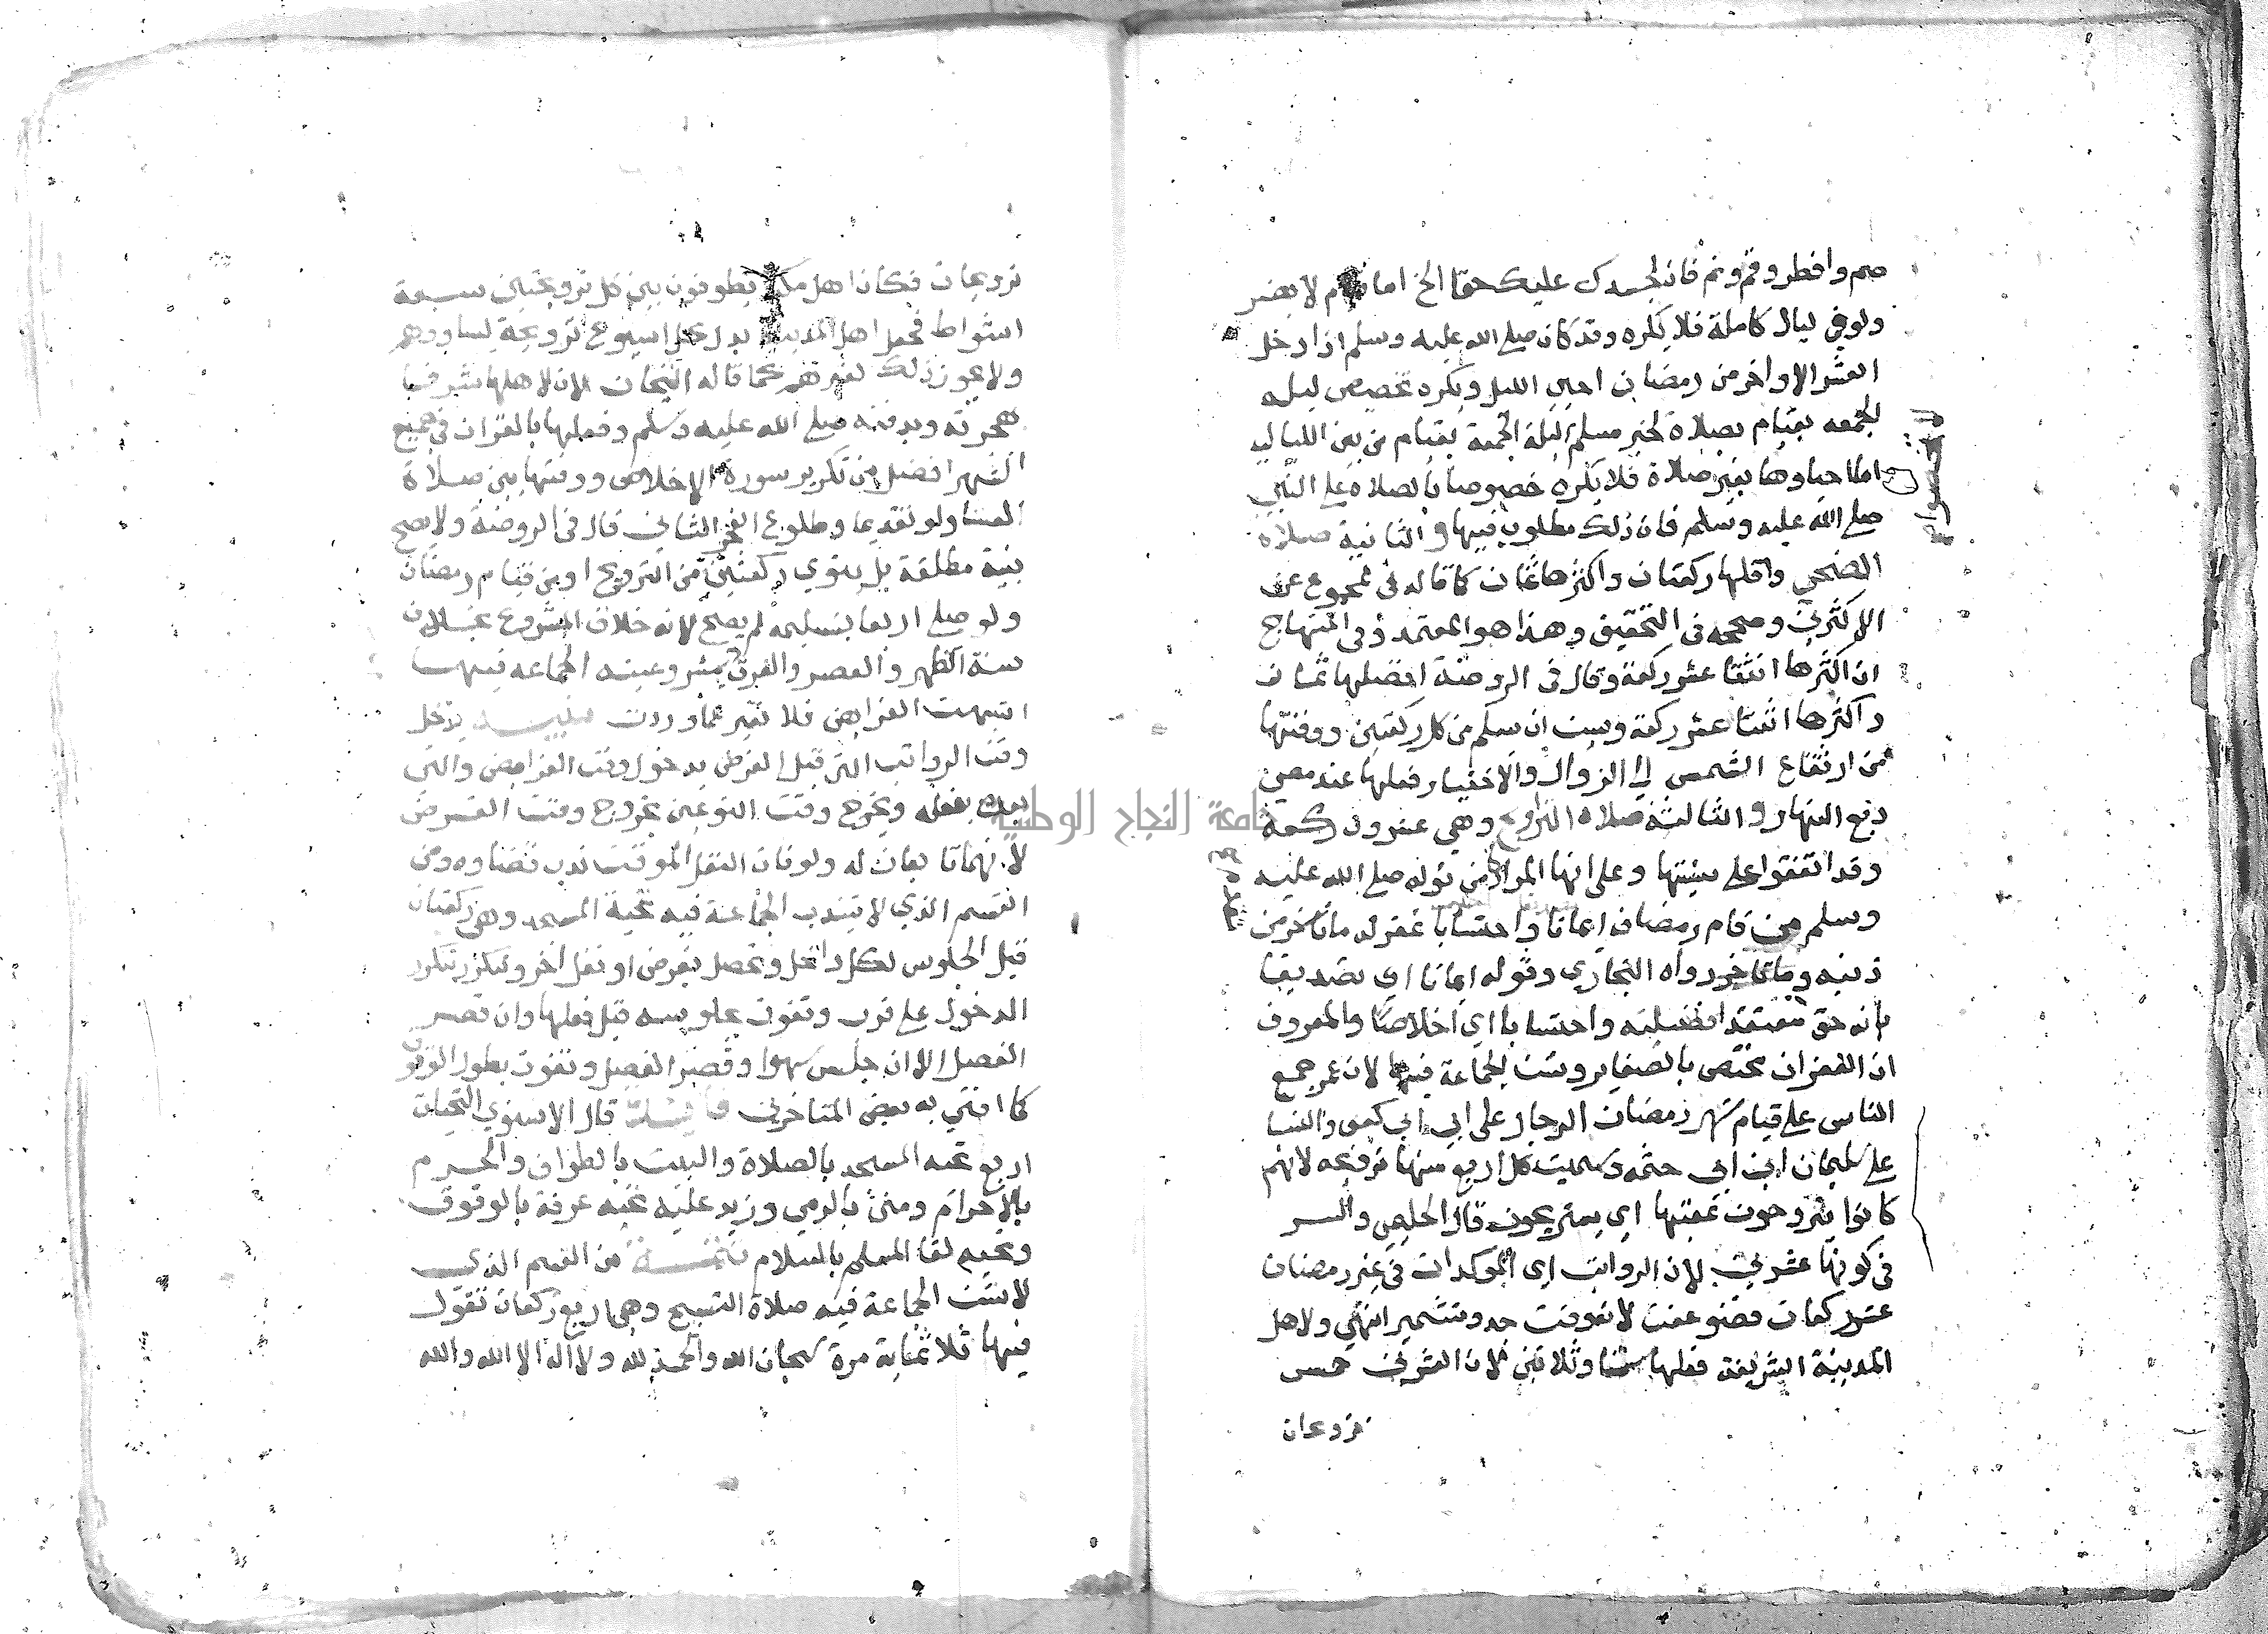 صم وافطر وقم ونم فان لجسدك عليك حقا الخ اما قيام لا يضر
ولو في ليال كاملة فلا يكره وقد كان صلي الله عليه وسلم اذا دخل
العشر الاواخر من رمضان احيي الليل ويكره تخصيص ليله
الجمعه بقيام بصلاة لخبر مسلم ليلة الجمعة بقيام من بين الليالي
اما احياوها بغير صلاة فلا يكره خصوصا بالصلاه علي النبي
صلي الله عليه وسلم فان ذلك مطلوب فيها والثانية صلاه
الضحي واقلها ركعتان واكثرها ثمان كما قاله في المجموع عن
الاكثرين وصححه في التحقيق وهذا هو المعتمد وفي المنهاج
ان اكثرها اثنتا عشر ركعة وقال في الروضة افضلها ثمان
واكثرها اثنتا عشر ركعة ويسن ان يسلم من كل ركعتين ووقتها
من ارتفاع الشمس الي الزوال والاختيار فعلها عند مضي
ربع النهار والثالثة صلاه التراويح وهي عشرون ركعة
وقد اتفقوا علي سنيتها وعلي انها المراد من قوله صلي الله عليه
وسلم من قام رمضان ايمانا واحتسابا غفر له ما تاخر من
ذنبه وما تاخر رواه البخاري وقوله ايمانا اي تصديقا
بانه حق معتقدا فضيليته واحتسابا اي اخلاصا والمعروف
ان الغفران مختص بالصغاير وتسن الجماعة فيها لان عمر جمع
الناس علي قيام شهر رمضان الرجال علي ابي ابن كعب والنسا
علي سليمان ابن ابي حثمه وسميت كل اربع منها ترويحه لانهم
كانوا يتروحون عقبها اي يستريحون قال الحليمي والسر
في كونها عشرين لان الرواتب اي الموكدات في غير رمضان
عشر ركعات فضوعفت لانه وقت جد وتشمير انتهي ولاهل
المدينة الشريفة فعلها ستا وثلاثين لان العشرين خمس
ترويحات
ترويحات فكان اهل مكة يطوفون بين كل ترويحتين سبعة
اشواط فجعل اهل المدينة بدل كل اسبوع ترويحة ليساووهم
ولا يجوز ذلك لغيرهم كما قاله الشيخان لان لاهلها شرفا
بهجرته وبدفنه صلي الله عليه وسلم وفعلها بالقران في جميع
الشهر افضل من تكرير سورة الاخلاص ووقتها بين صلاة
العشا ولو تقديما وطلوع الفجر الثاني قال في الروضة ولا يصح
بنية مطلقة بل ينوي ركعتين من التروايح او من قيام رمضان
ولو صلي اربعا بتسليمه لم يصح لانه خلاف المشروع بخلاف
سنة الظهر والعصر والفرق بمشروعيته الجماعه فيها
اشبهت الفرايض فلا تغير عما وردت يدخل
وقت الرواتب التي قبل الفرض بدخول وقت الفرايض والتي
بعده بفعله ويخرج وقت النوعين بخروج وقت الفرض
لانهما تابعان له ولو فات النفل الموقت ندب قضاوه ومن
القسم الذي لا يندب الجماعة فيه تحية المسجد وهي ركعتان
قبل الجلوس لكل داخل وتحصل بفرض او نفل اخر وتتكرر بتكرر
الدخول علي قرب وتفوت بجلوسه قبل فعلها وان قصر
الفصل الا ان جلس سهوا وقصر الفصل وتفوت بطول الوقوف
كما افتي به بعض المتاخرين قال الاسنوي التحيات
اربع تحيه المسجد بالصلاة والبيت بالطواف والحرم
بالاحرام ومني بالرمي وزيد عليه تحيه عرفة بالوقوف
وتحيه لقا المسلم بالسلام من القسم الذي
لا تسن الجماعة فيه صلاة التسبيح وهي اربع ركعات تقول
فيها ثلاثماية مرة سبحان الله والحمد لله ولا اله الا الله والله
جامعة النجاح الوطنية